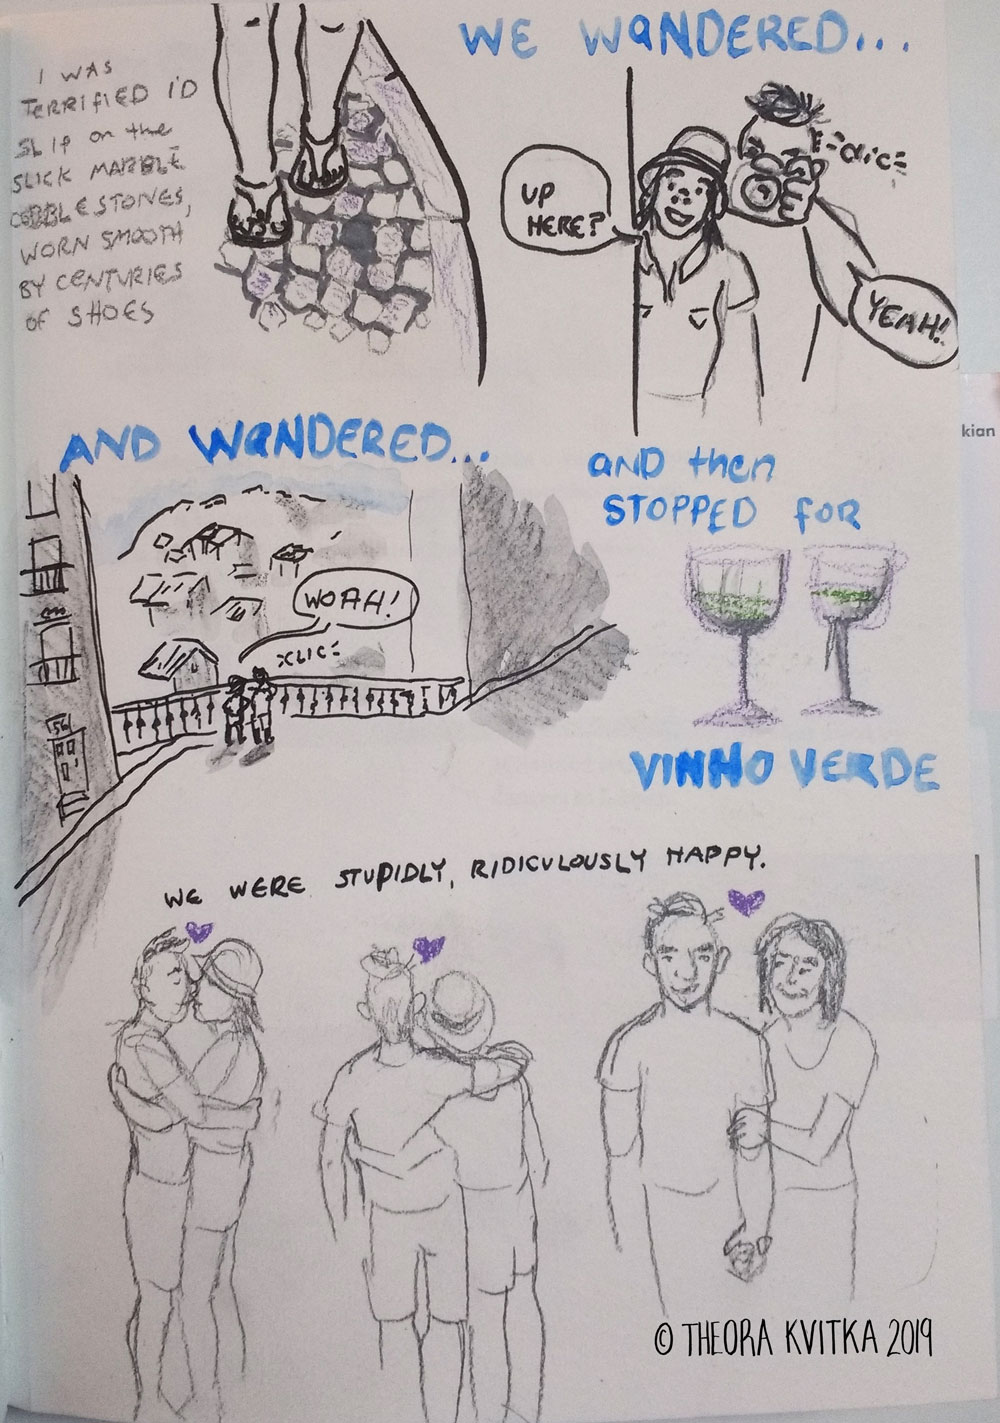 WE WANDERED...
I WAS
TERRIFIED I'D
SLIP on the
SLICK MARBLE
COBBLESTONES,
WORN SMOOTH
BY CENTURIES
OF SHOES
UP
HERE?
CLIC
YEAH!
AND WANDERED...
WOAH!
CLIC
56
and then
STOPPED for
VINHO VERDE
WE WERE STUPIDLY, RIDICULOUSLY HAPPY.
kian
© THEORA KVITKA 2019